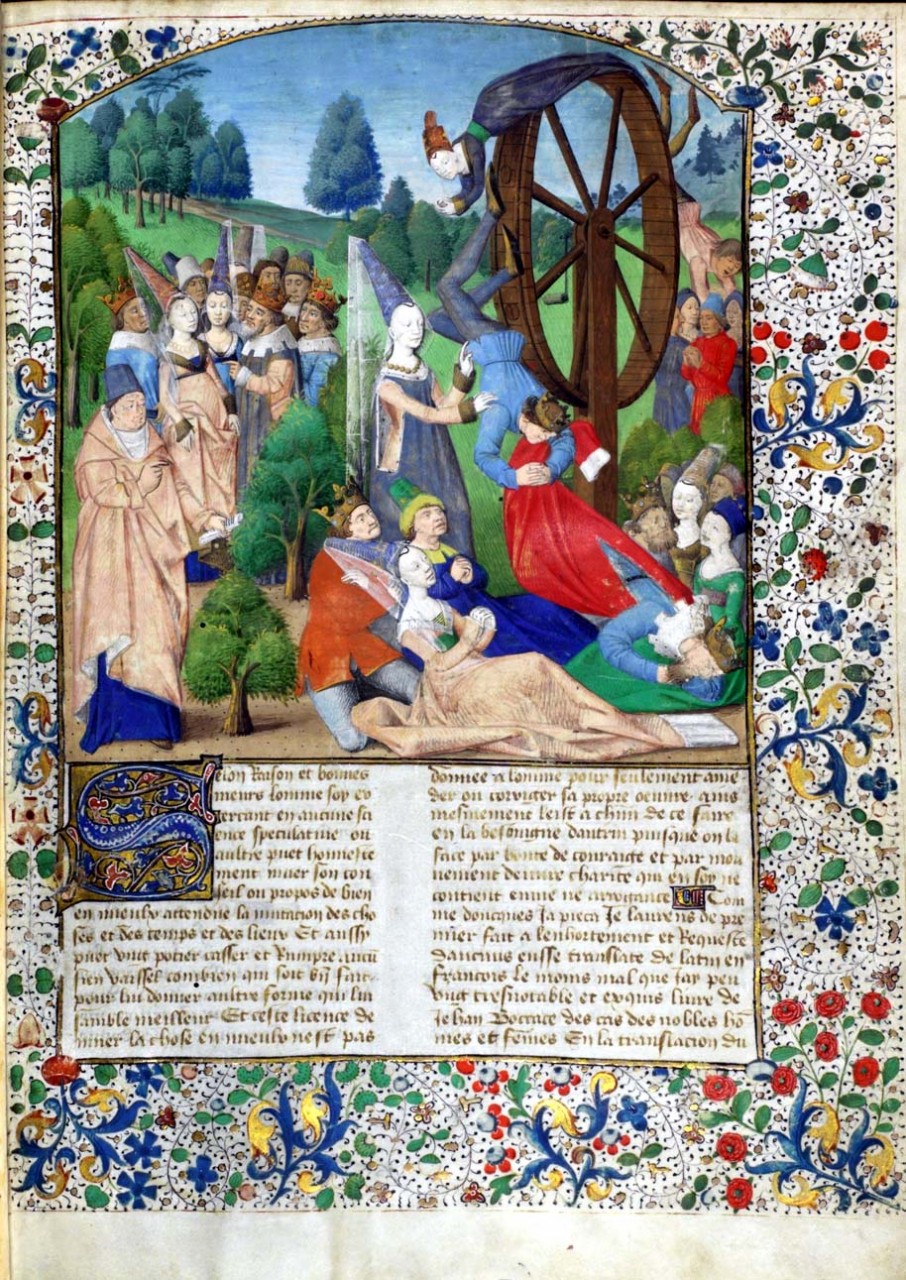 Selon Raison et bonnes
meurs lomme soy ex
ercant en aucune sci
ence speculatiue ou
aultre puet honneste
ment muer son con
seil ou propos de bien
en mieulx attendue la mutacion des cho
ses et des temps et des lieux Et aussy
puet vng potier casser et Rompre aucū
sien vaissel combien qui soit bn̄ fait
pour lui donner aultre forme qui lui
samble meilleur Et ceste licence de
muer la chose en mieulx nest pas
donnee a lomme pour seulement ame
der ou corriger sa propre oeuure ains
mesmement leist a chūn de ce faire
en la besoingne dautrui puisque on le
face par bonte de couraige et par mou
uement de vraie charite qui en soy ne
contient enuie ne arrogance Com
me doncques Ja pieca Je laurens de pre
mier fait a lenhortement et Requeste
daucuns eusse translate de latin en
francois le moins mal que Jay peu
vng tresnotable et exquis liure de
Jehan Boccace des cas des nobles hō
mes et fēmes En la translacion du